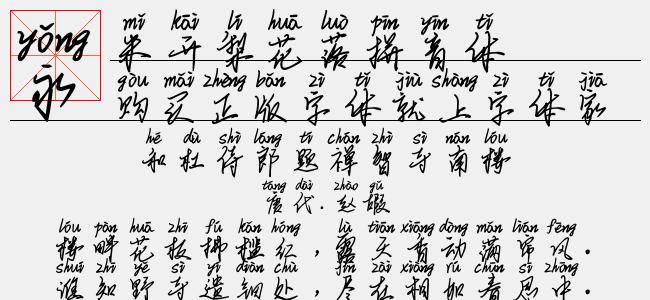 yǒng
永
mǐ kāi lí huā luò pīn yīn tǐ
米开梨花落拼音体
gòu mǎi zhèng bǎn zì tǐ jiù shàng zì tǐ jiā
购买正版字体就上字体家
hé dù shì láng tí chán zhì sì nán lóu
和杜侍郎题禅智寺南楼
táng dài zhào gǔ
唐代.赵嘏
lóu pàn huā zhī fú kǎn hóng lù tiān xiāng dòng mǎn lián fēng
楼畔花枝拂槛红,露天香动满帘风.
shuí zhī yě sì yí diàn chù jìn zài xiāng rú chūn sī zhōng
谁知野寺遗钿处,尽在相如春思中.